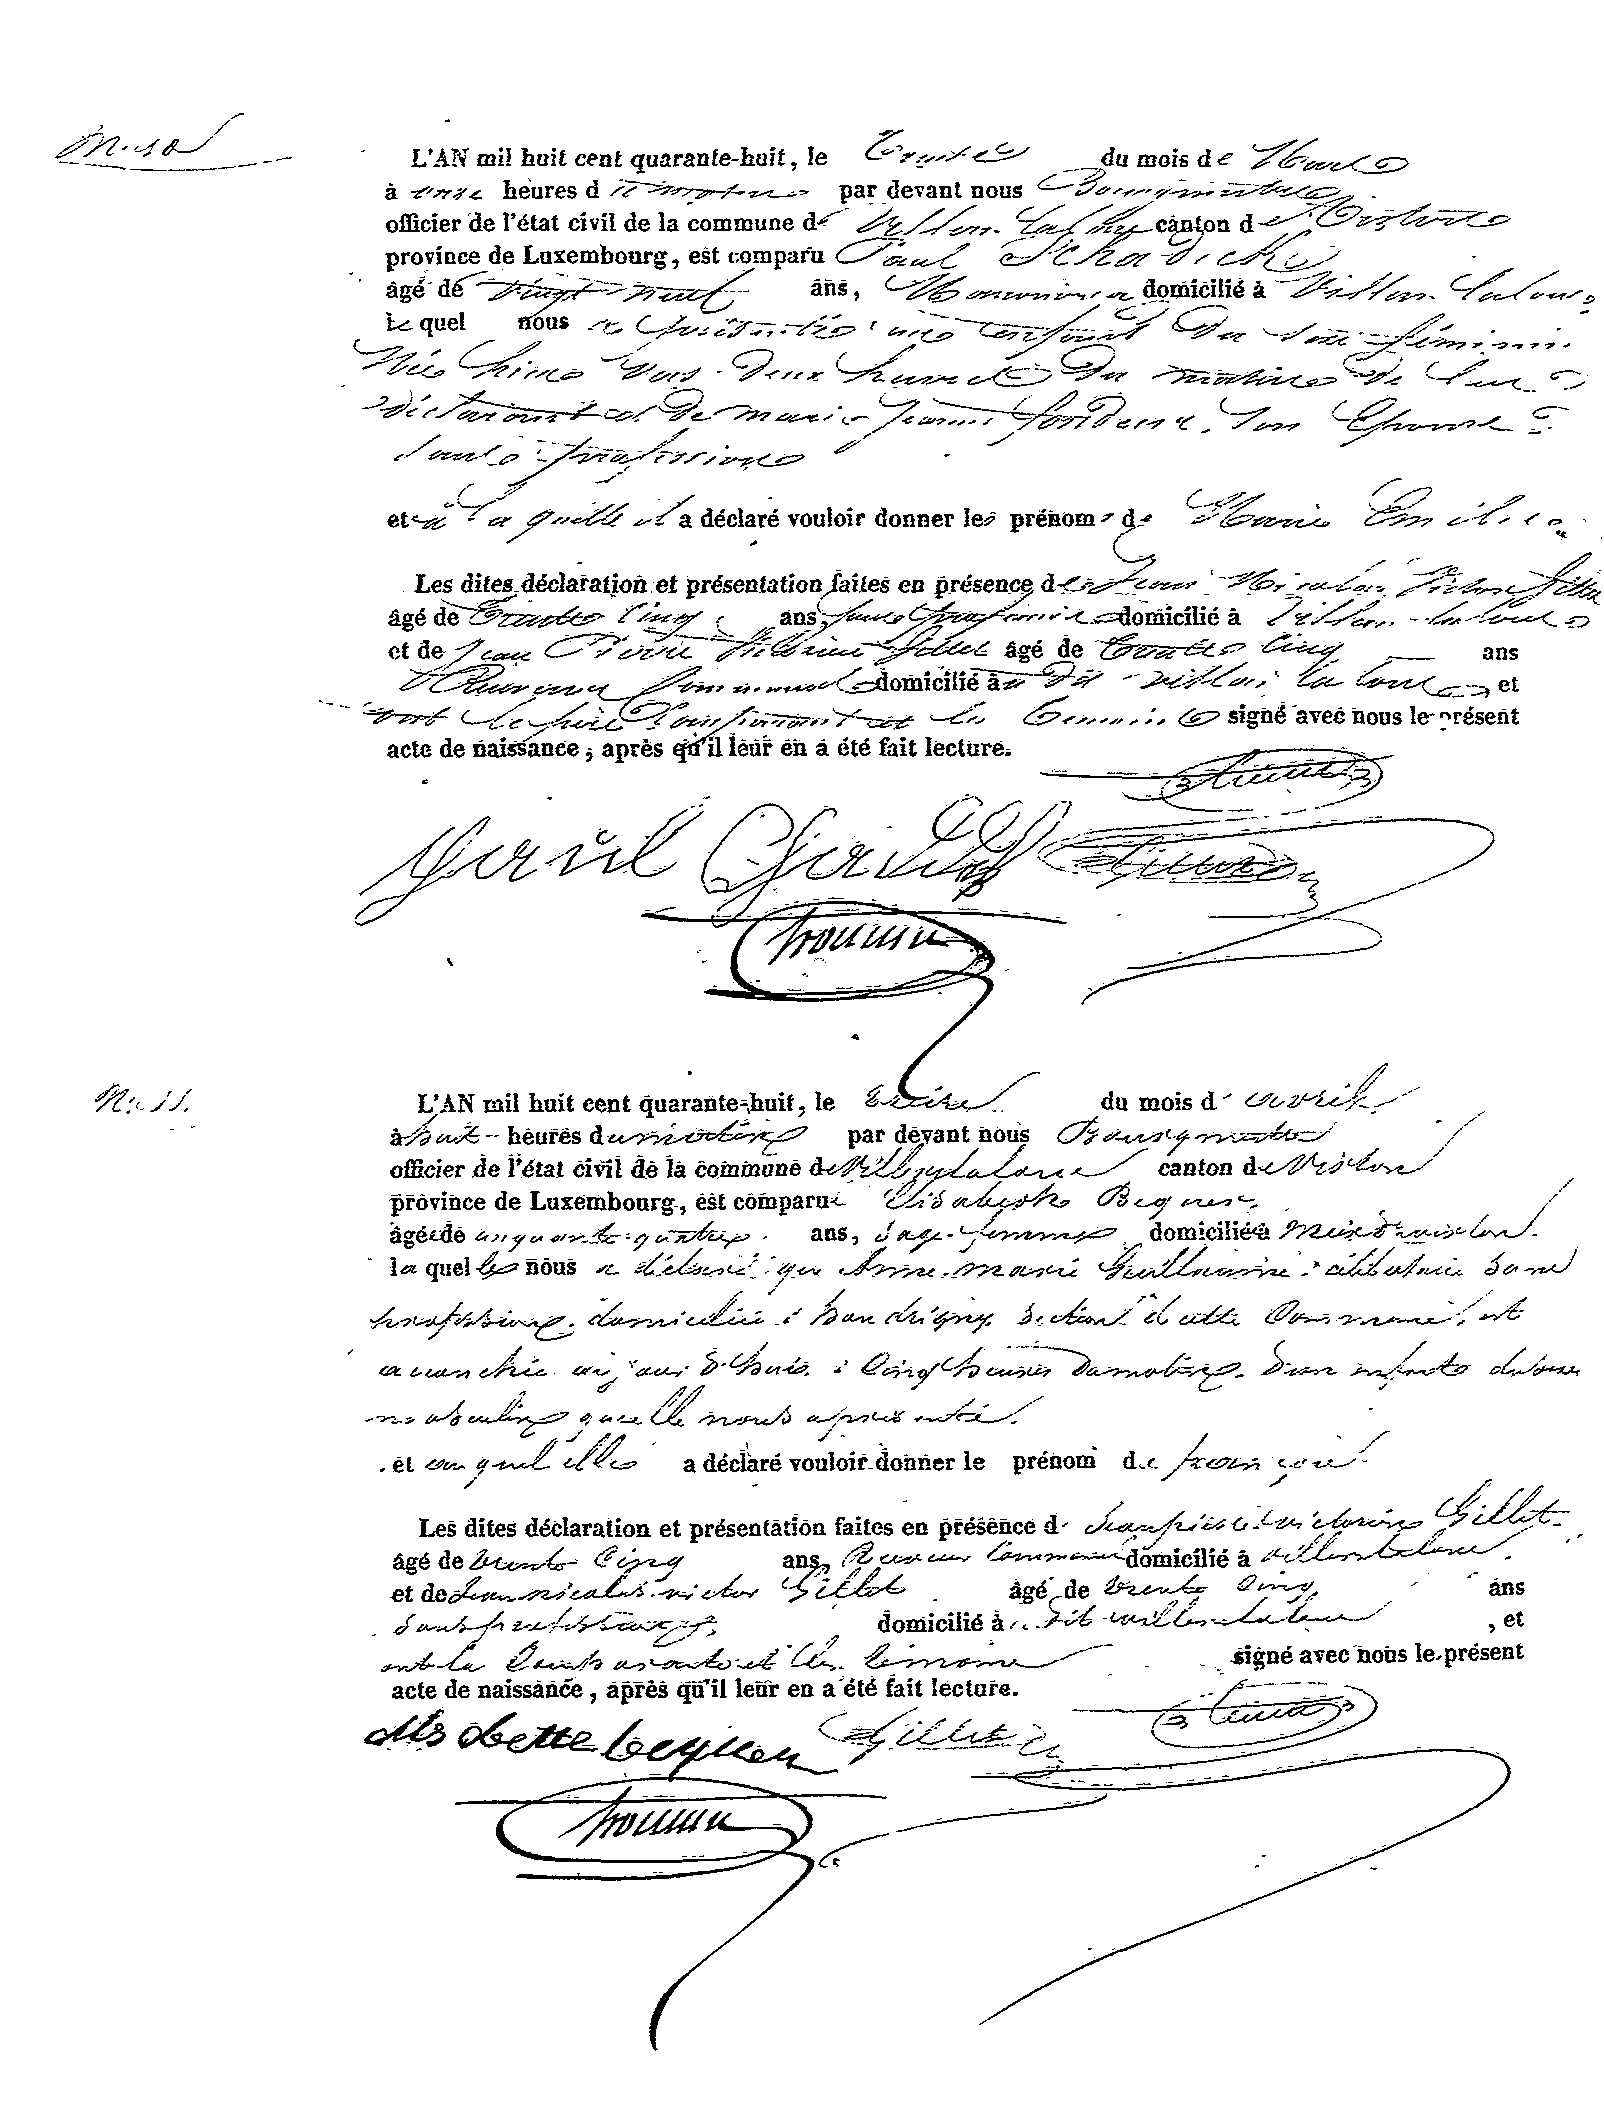 N. 10
L'AN mil huit cent quarante-huit, le Trente du mois de Mars
à onze heures du matin par devant nous Bourgmestre
officier de l'état civil de la commune de Villers la loue canton de Virton
province de Luxembourg, est comparu Paul Schadeck
âgé de vingt neuf ans, domicilié à Villers la loue
le quel nous a présenté une enfant du sexe féminin
Née hier vers deux heures du matin de lui
déclarant et de marie jeanne son Epouse
sans profession
et à la quelle il a déclaré vouloir donner les prénoms de Marie Emilie
Les dites déclaration et présentation faites en présence de Jean Nicolas Victor Gillet
âgé de Trente Cinq ans, sans profession domicilié à Villers la loue
et de Jean Pierre Victorien Gillet âgé de Trente Cinq ans
Receveur Communal domicilié à u dit villers la loue et
ont le père comparant et les temoins signé avec nous le présent
acte de naissance, après qu'il leur en a été fait lecture.
Paul
N. 11.
L'AN mil huit cent quarante-huit, le treize du mois d'avril
à huit heures du matin par devant nous Bourgmestre
officier de l'état civil de la commune de Villers la loue canton de Virton
province de Luxembourg, est comparue Elisabeth
âgée de cinquante quatre ans, sage femme domiciliée à Meix dt virton
la quelle nous a déclaré que Anne marie Guillaume célibataire sans
profession domiciliée à houdrigny section de cette Commune, est
accouchée aujourd'hui à Cinq heures du matin d'un enfant du sexe
masculin qu'elle nous a présenté.
et au quel elle a déclaré vouloir donner le prénom de françois
Les dites déclaration et présentation faites en présence de Jean pierre victorien Gillet
âgé de trente Cinq ans, Receveur Communal domicilié à villers la loue
et de Jean nicolas victor Gillet âgé de trente Cinq ans
sans profession domicilié à u dit villers la loue, et
ont la Comparante et les témoins signé avec nous le présent
acte de naissance, après qu'il leur en a été fait lecture.
Gillet